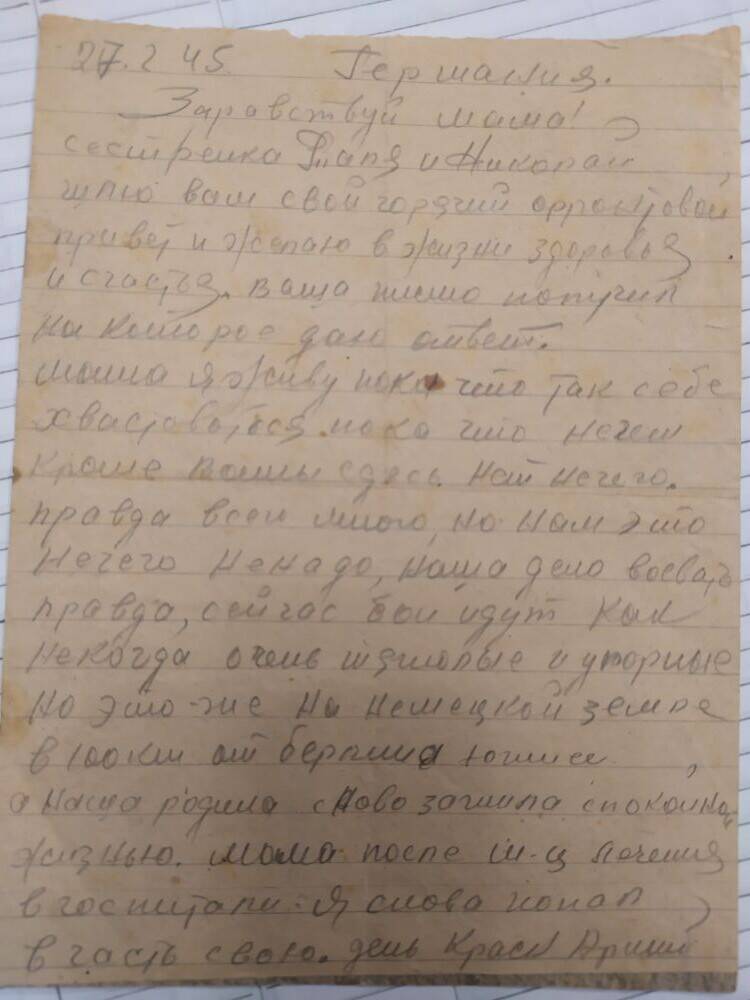 27.2 45. Германия.
Здравствуй мама!
сестренка и Николай,
шлю вам свой горячий фронтовой
привет и желаю в жизни здоровья
и счастья. Ваша писмо получил
на которое даю ответ.
мама я живу пока что так себе
хваставаться пока что нечем
кроме здесь нат нечего.
правда всей много, но нам это
нечего ненадо, наша дело воевать
правда, сейчас бои идут как
некогда очень тяжолые и упорные
но это-же на немецкой земле
в 100 км от берлина южнее,
а наша родина снова зажила спокойной
жизнью. мама после м-ц лечения
в госпитали я снова попал,
в часть свою. день Красн Армии